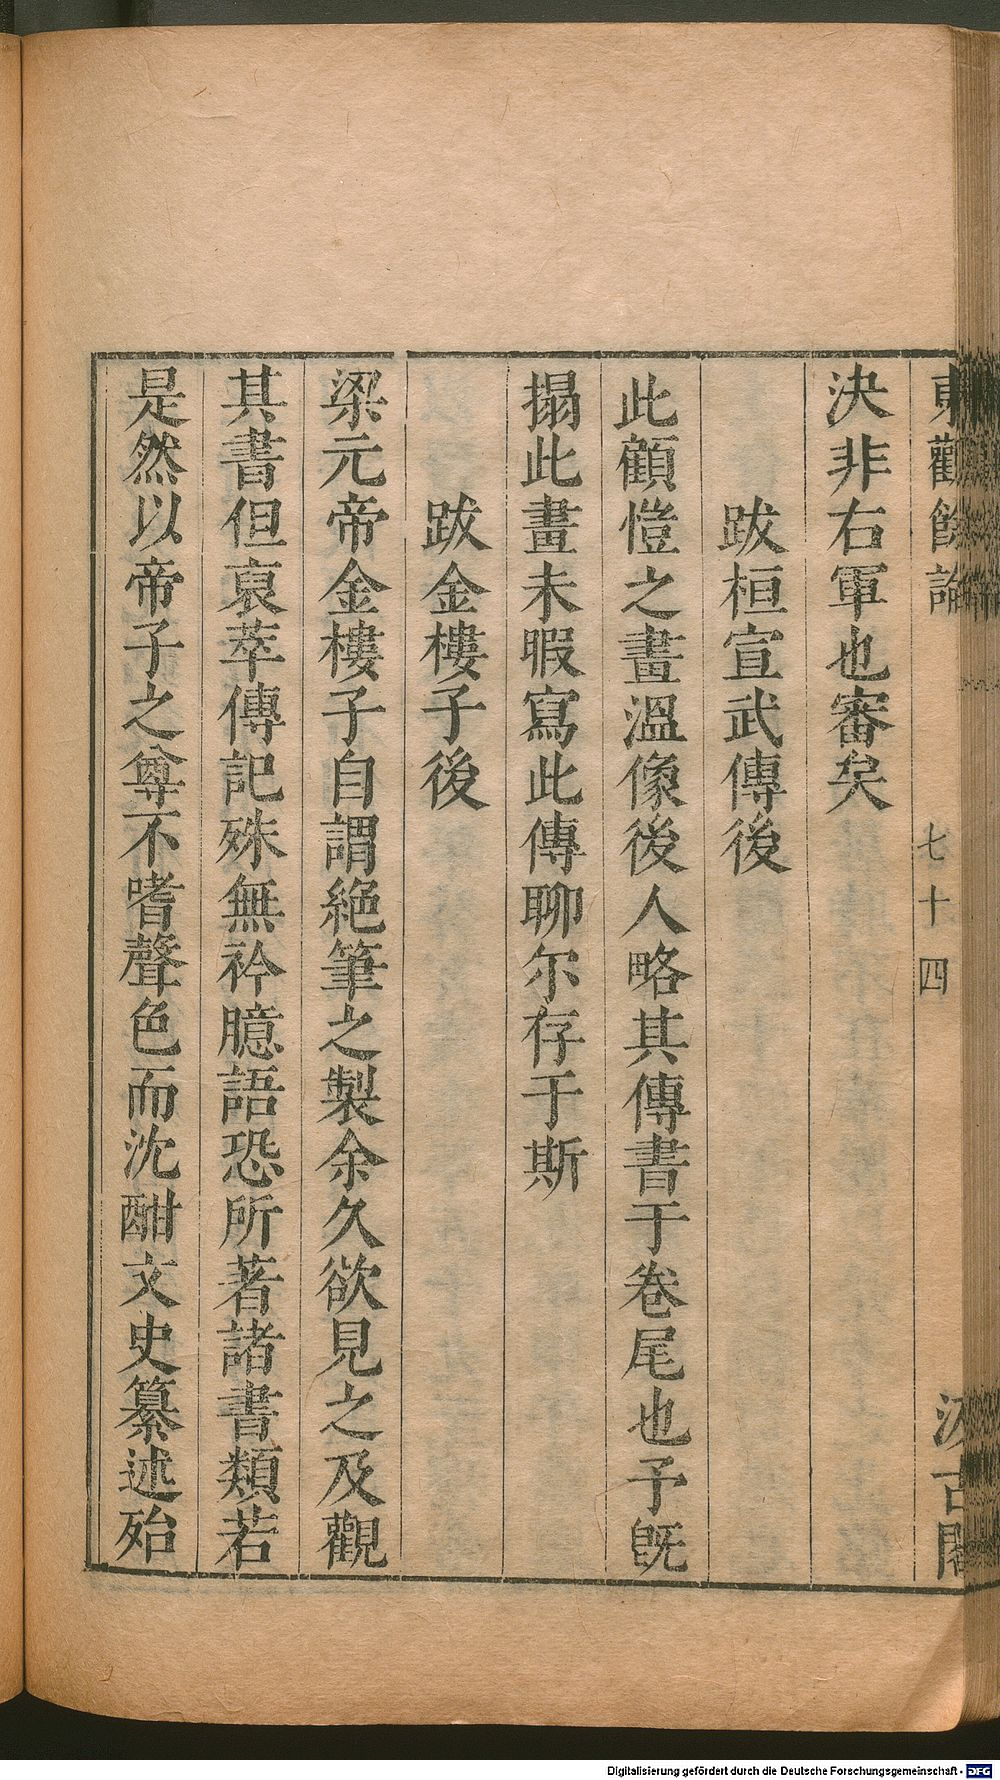 東觀餘論 七十四 汲古閣
決非右軍也審矣
跋桓宣武傳後
此顧愷之畫溫像後人略其傳書于卷尾也予旣
搨此畫未暇寫此傳聊尓存于斯
跋金樓子後
梁元帝金樓子自謂絶筆之製余久欲見之及觀
其書但裒萃傳記殊無衿臆語恐所著諸書類若
是然以帝子之尊不嗜聲色而沈酣文史纂述殆
Digitalisierung gefördert durch die Deutsche Forschungsgemeinschaft - DFG